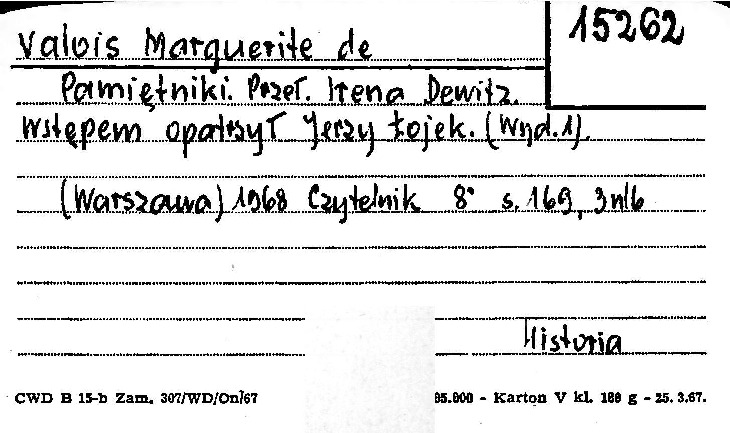 15262
Valois Marguerite de
Pamiętniki. Przeł. Irena Dewitz.
Wstępem opatrzył Jerzy Łojek. (Wyd. 1).
(Warszawa) 1968 Czytelnik 8° s. 169, 3nlb
Historia
CWD B 15-b Zam. 307/WD/On/67 85.000 - Karton V kl. 180 g - 25. 3.67.